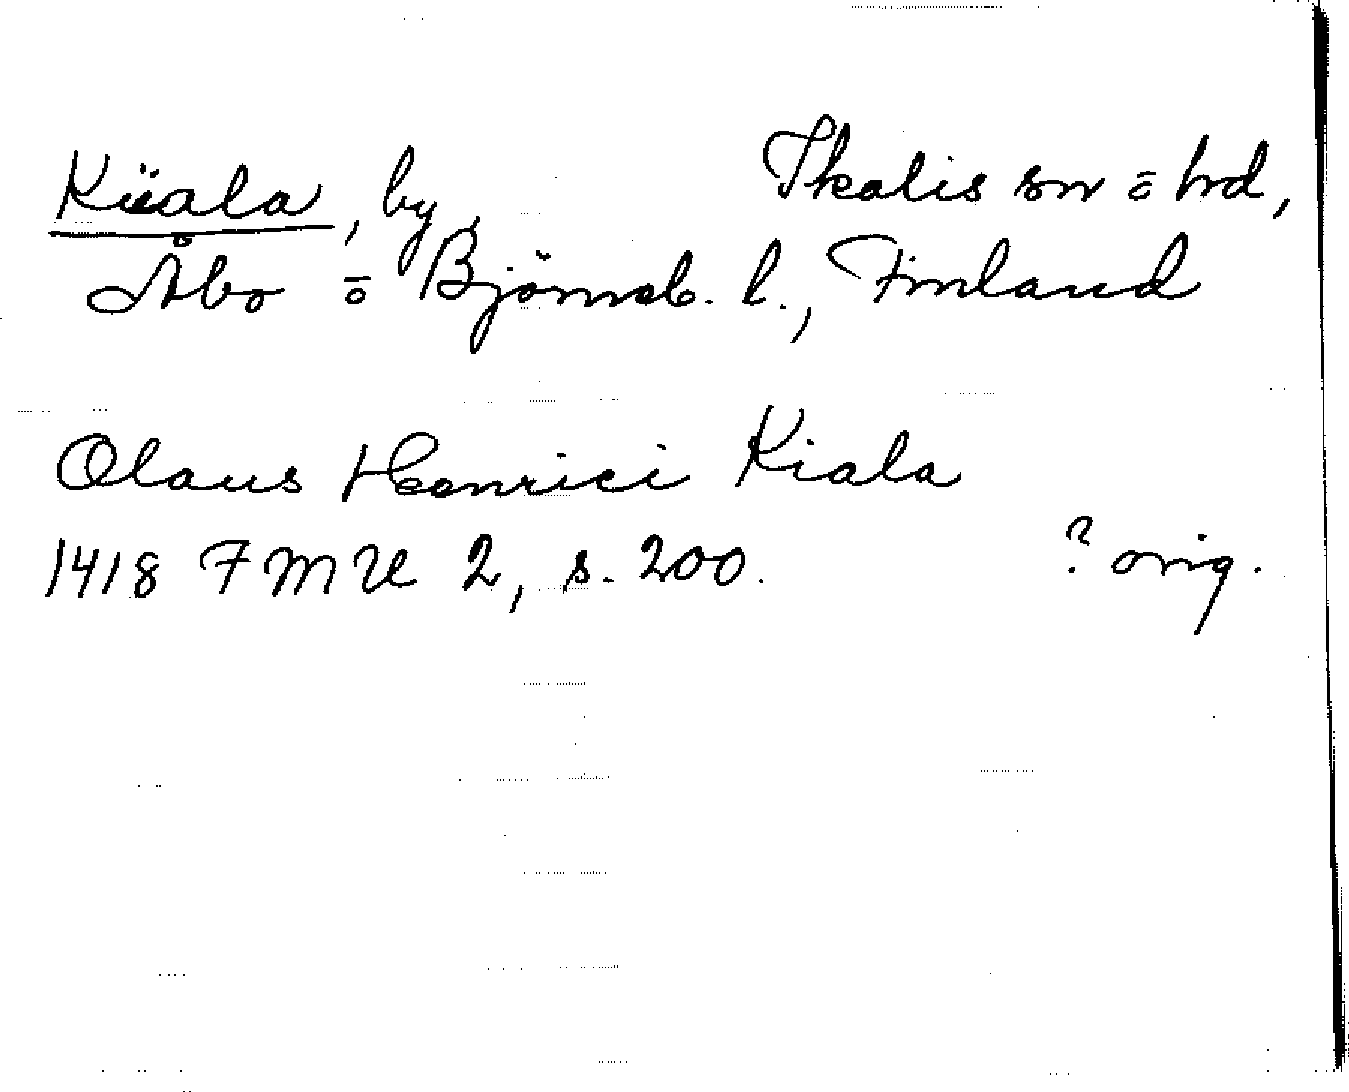 Kiiala, by, Ikalis sn o hd,
Åbo o Björneb. l., Finland
Olaus Henrici Kiala
1418 FMU 2, s. 200. ? orig.